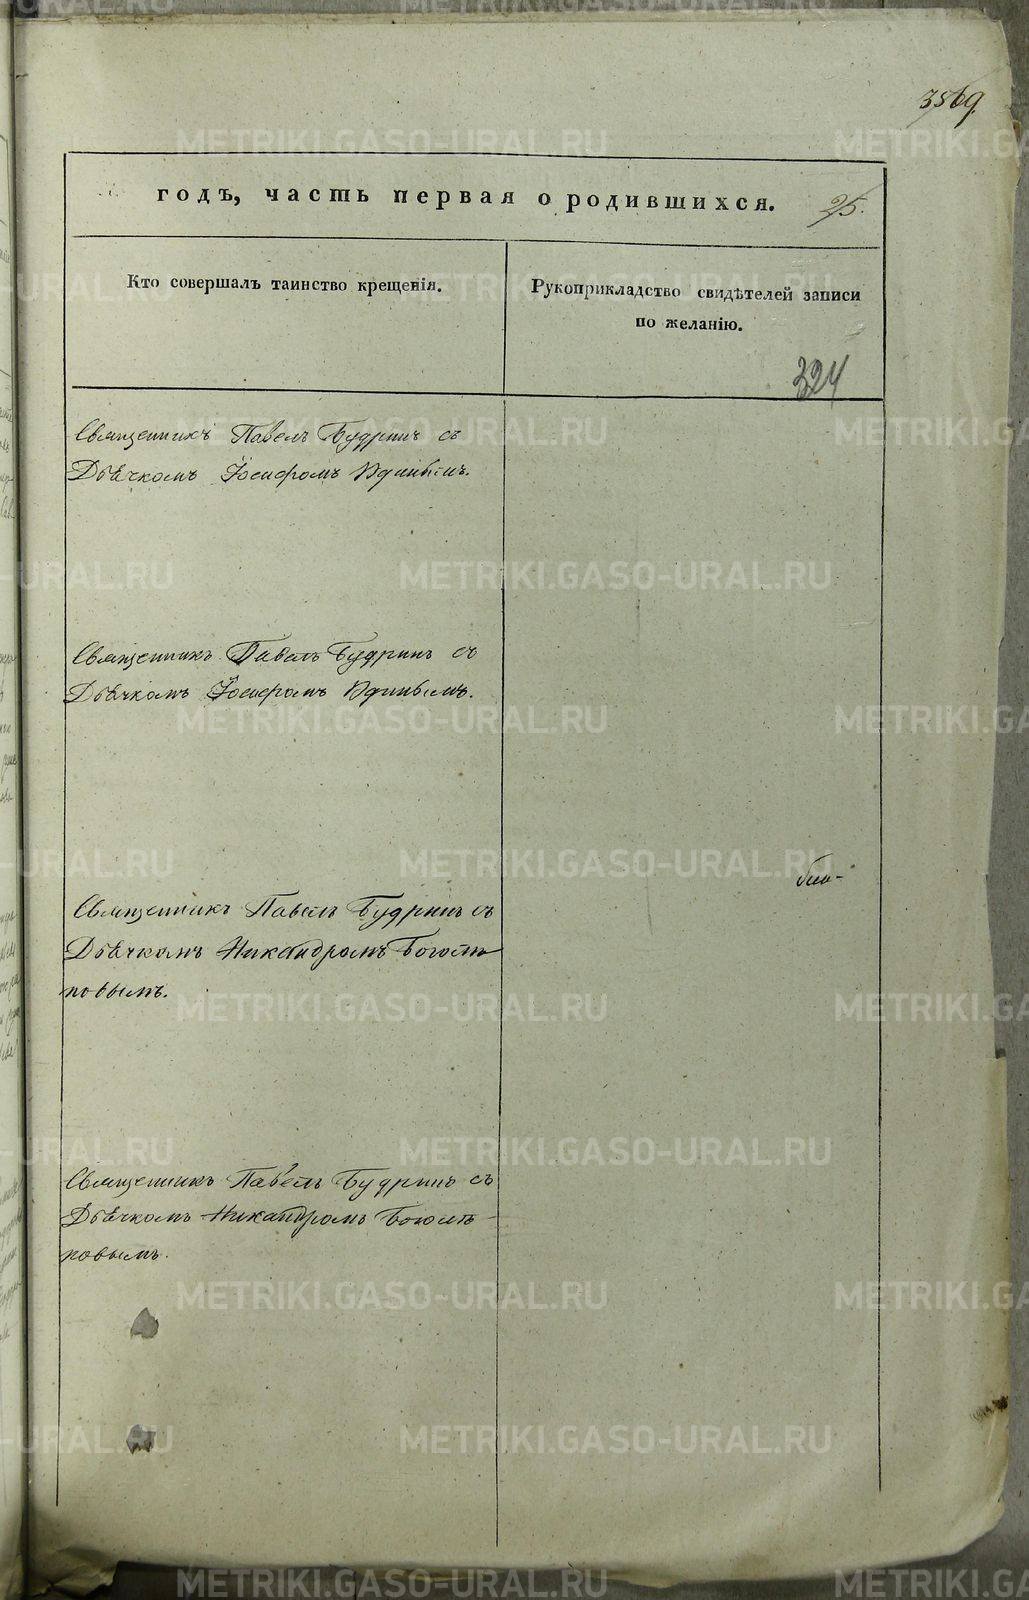 3569.
годъ, часть первая о родившихся. 25.
Кто совершалъ таинство крещенія.
Рукоприкладство свидѣтелей записи
по желанію.
324
Священникъ Павелъ Будринъ съ
Дьячкомъ Іосифомъ
Священникъ Павелъ Будринъ съ
Дьячкомъ Іосифомъ
Священникъ Павелъ Будринъ съ
Дьячкомъ Никандромъ Богомѣ
повымъ.
Священникъ Павелъ Будринъ съ
Дьячкомъ Никандромъ Боголѣ-
повымъ.
METRIKI.GASO-URAL.RU